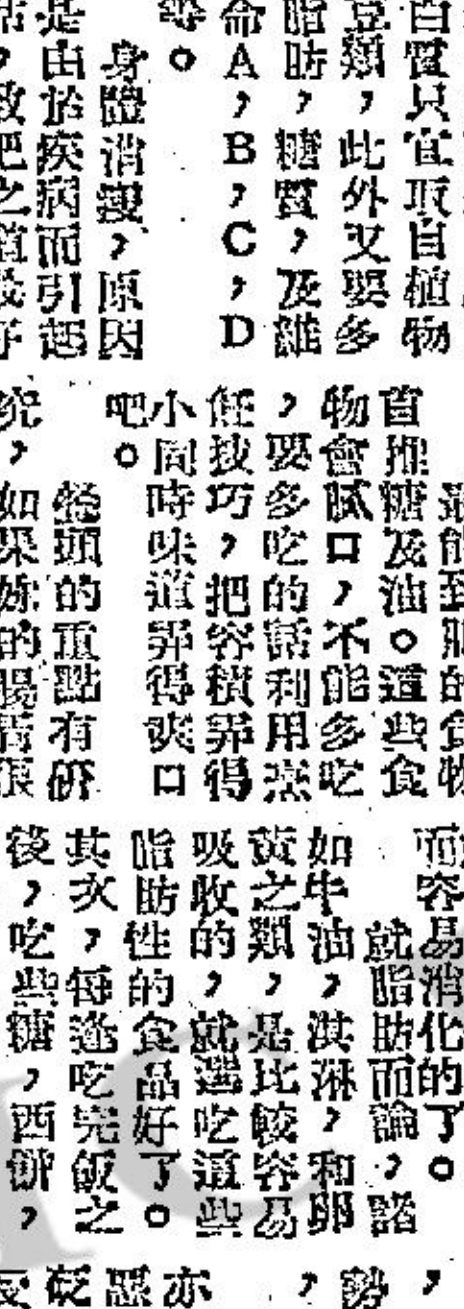 白質只宜取自植物
豆類，此外又要多
脂肪，糖質，及維
命A，B，C，D
等。
身體消瘦，原因
是由於疾病而引起
的食物
首推糖及油。這些食
物會膩口，不能多吃
，要多吃的話利用烹
飪技巧，把容積弄得
小同時味道弄得爽口
吧。
的重點有研
究，如果妳的腸胃很
而容易消化的了。
就脂肪而論，諸
如牛油，淇淋，和卵
黃之類，是比較容易
吸收的，就選吃這些
脂肪性的食品好了。
其次，每逢吃完飯之
後，吃些糖，西餅，
，
勢
，
亦
惡